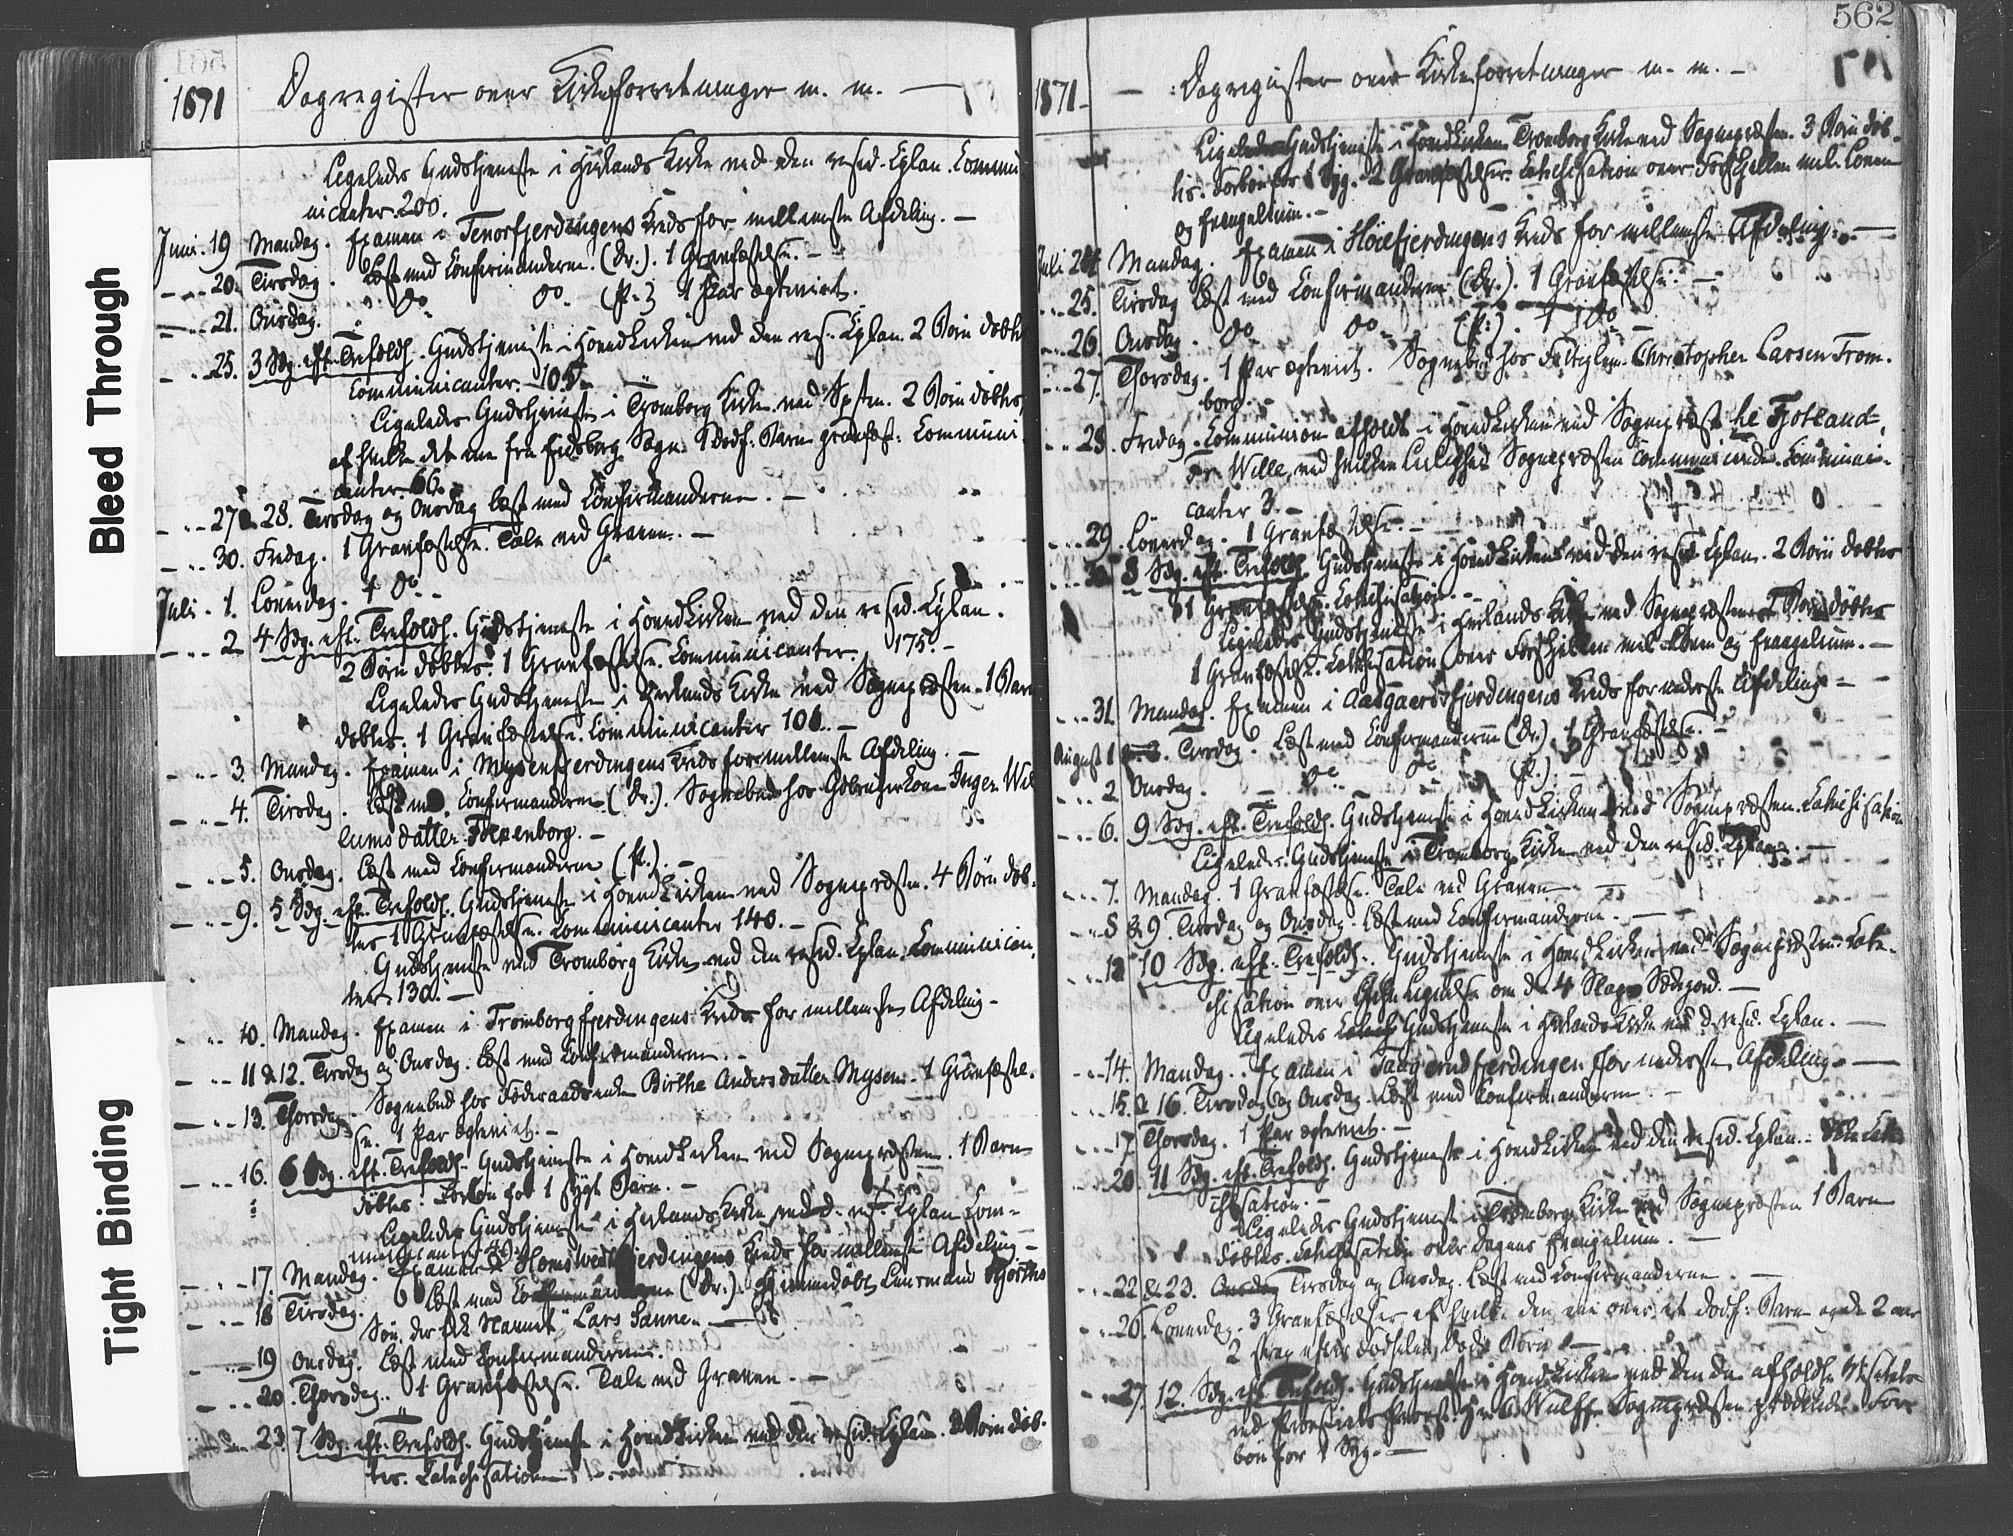 Bleed Through
Tight Binding
1871 Dagregister over Kirkeforretninger m. m. —
Ligeledes Gudstjeneste i Hærlands Kirke ved den resid. Cplan. Commu-
nicanter 200.
Juni. 19 Mandag. Examen i Tenorfjerdingens Kreds for mellemste Afdeling. —
20. Tirsdag. Læst med Confirmanderne. (Dr.). 1 Gravfæstelse. —
21. Onsdag. " Do Do. (P.) 1 Par ægteviet.
25. 3 Sdg. eft. Trefoldh. Gudstjeneste i Hovedkirken ved den res. Cplan. 2 Børn døbtes
Communicanter. 105.
Ligeledes Gudstjeneste i Tromborg Kirke ved Spsten. 2 Børn døbtes,
af hvilke det ene fra Eidsberg Sogn. 1 dødf: Barn gravfæst: Communi-
canter. 66.
27 & 28. Tirsdag og Onsdag læst med Confirmanderne. —
30. Fredag. 1 Gravfæstelse. Tale ved Graven. —
Juli. 1. Löverdag. 1 Do. -
2 4 Sdg. eft. Trefoldh. Gudstjeneste i Hovedkirken ved den resid. Cplan.
2 Børn døbtes. 1 Gravfæstelse. Communicanter. 175. —
Ligeledes Gudstjeneste i Hærlands Kirke ved Sognepræsten. 1 Barn
døbtes. 1 Gravfæstelse. Communicanter 106. —
3. Mandag. Examen i Mysenfjerdingens Kreds for mellemste Afdeling. —
4. Tirsdag. Læst med Confirmanderne (Dr.). Sognebud hos Gdbrugerkone Inger Wil-
lumsdatter Folkenborg. —
5. Onsdag. Læst med Confirmanderne (P.). —
9. 5 Sdg. eft. Trefoldh. Gudstjeneste i Hovedkirken ved Sognepræsten. 4 Børn døb-
tes 1 Gravfæstelse. Communicanter 140. —
Gudstjeneste ved Tromborg Kirke ved den resid. Cplan. Communican-
ter. 130. —
10. Mandag. Examen i Tromborgfjerdingens Kreds for mellemste Afdeling —
11 & 12. Tirsdag og Onsdag. Læst med Confirmanderne. —
13. Thorsdag. Sognebud hos Föderaadsenke Birthe Andersdatter Mysen. 1 Gravfæstel-
se. 1 Par ægteviet. —
16. 6 Sdg. eft. Trefoldh. Gudstjeneste i Hovedkirken ved Sognepræsten. 1 Barn
døbtes. Forbön for 1 sygt Barn. —
Ligeledes Gudstjeneste i Hærlands Kirke ved d. res. Cplan Com-
municanter 45.
17. Mandag. Examen i Homstvedtfjerdingens Kreds for mellemste Afdeling —
18 Tirsdag. Læst med Confirmanderne (Dr.). Hjemmedöbt Lensmand Hjorths
Sön, der fik Navnet "Lars Sanne". —
19 Onsdag. Læst med Confirmanderne.
20. Thorsdag. 1 Gravfæstelse. Tale ved Graven. —
23. 7 Sdg. eft. Trefoldh. Gudstjeneste i Hovedkirken ved den resid. Cplan. 2 Børn döb-
tes. Catechisation
562
1871 — Dagregister over Kirkeforretninger m. m. —
Ligeledes Gudstjeneste i Tromborg Kirke ved Sognepræsten. 3 Börn döb-
tes. Forbön for 1 Syg. 2 Gravfæstelser. Catechisation over Forskjellen mel. Loven
og Evangelium. —
Juli 24 Mandag. Examen i Höiefjerdingens Kreds for mellemste Afdeling. —
25. Tirsdag Læst med Confirmanderne (Dr.). 1 Gravfæstelse. —
26 Onsdag. Do Do (P.). 1 Do —
27. Thorsdag. 1 Par ægteviet. Sognebud hos Fattiglem Christopher Larsen Trom-
borg. —
28. Fredag. Communion afholdt i Hovedkirken ved Sognepræst til Fjotland,
Hr Wille, ved hvilken Leilighed Sognepræsten communicerede. Communi-
canter 3. —
29. Löverdag. 1 Gravfæstelse. —
30. 8 Sdg. eft. Trefoldh. Gudstjeneste i Hovedkirken ved den resid. Cplan. 2 Börn döbtes
1 Gravfæstelse. Catechisation. —
Ligeledes Gudstjeneste i Hærlands Kirke ved Sognepræsten. 2 Börn döbtes
1 Gravfæstelse. Catechisation over Forskjellen mel. Loven og Evangelium. —
31. Mandag. Examen i Aasgaardsfjerdingens Kreds for nederste Afdeling —
August 1 Tirsdag. Læst med Confirmanderne (Dr.). 1 Gravfæstelse. —
2 Onsdag. Do Do (P.). —
6. 9 Sdg. eft. Trefoldh. Gudstjeneste i Hovedkirken ved Sognepræsten. Catechisation
Ligeledes Gudstjeneste i Tromborg Kirke ved den resid. Cplan. —
7. Mandag. 1 Gravfæstelse. Tale ved Graven —
8 & 9. Tirsdag og Onsdag. Læst med Confirmanderne. —
13 10 Sdg. eft. Trefoldh. Gudstjeneste i Hovedkirken ved Sognepræsten. Cate-
chisation over Lignelse om de 4 Slags Sædejord. —
Ligeledes Gudstjeneste i Hærlands Kirke ved d. resid. Cplan. —
14. Mandag. Examen i Taagerudfjerdingen for nederste Afdeling. —
15. & 16. Tirsdag og Onsdag. Læst med Confirmanderne. —
17 Thorsdag. 1 Par ægteviet. —
20 11 Sdg. eft. Trefoldh. Gudstjeneste i Hovedkirken ved den resid. Cplan. Cate-
chisation. —
Ligeledes Gudstjeneste i Tromborg Kirke ved Sognepræsten 1 Barn
döbtes. Catechisation over Dagens Evangelium. —
22 & 23. Tirsdag og Onsdag. Læst med Confirmanderne. —
26. Löverdag. 3 Gravfæstelser af hvilke den ene over et dödf: Barn og de 2 over
2 strax efter Födselen döde Börn —
27. 12. Sdg. eft. Trefoldh. Gudstjeneste i Hovedkirken ved den da afholdte Visitats
ved Provst Wulff. Sognepræsten prædikede. For-
bön for 1 Syg. —